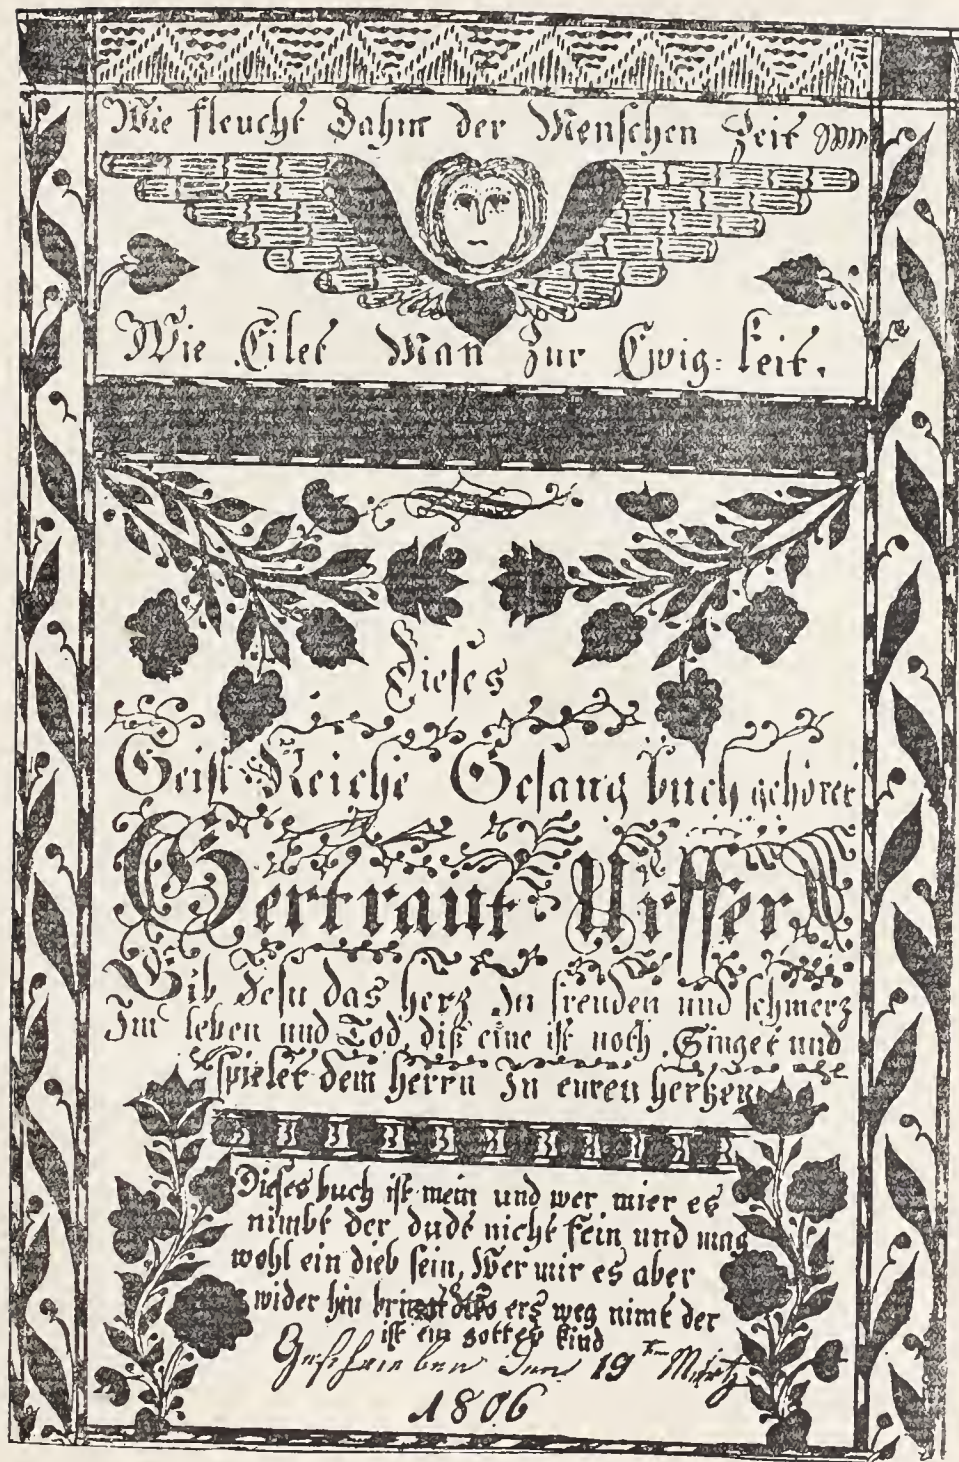 Wie fleucht dahin der Menschen Zeit
Wie Eilet Man Zur Ewig=keit.
Dieses
Geist Reiche Gesang buch gehöret
Gertraut Urffer
Gib Jesu das herz In freuden und schmerz
Im leben und Tod, diß eine ist noth. Singet und
spielet dem herrn In euren hertzen
Dieses buch ist mein und wer mier es
nimbt der dudt nicht fein und mag
wohl ein dieb sein, Wer mir es aber
wider hin bringt Wo ers weg nimt der
ist ein gottes kind
Geschrieben den 19ten Mertz
1806